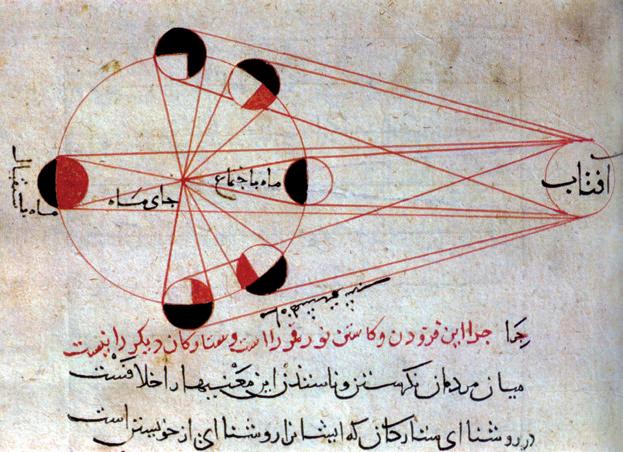 افتاب
ماه باجتماع
جای ماه
ماه باستقبال
چرا جرا این فزودن وکاستن نور قمر را است و ستارکان دیکر را نیست
میان مردمان نکرستن این معنیها را خلافست
در روشنای ستارکان که ایشانرا روشنای از خویشتن است